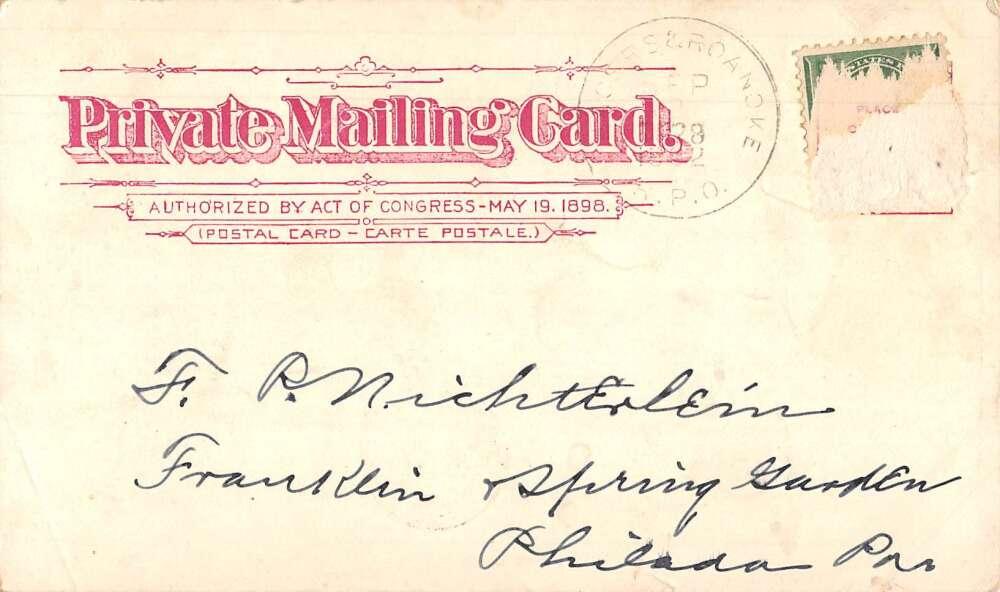 Private Mailing Card.
AUTHORIZED BY ACT OF CONGRESS-MAY 19. 1898.
(POSTAL CARD - CARTE POSTALE.)
& ROANOKE
28
R.P.O.
PLACE
F. P. Nichterlein
Franklin & Spring Garden
Philada Pa.